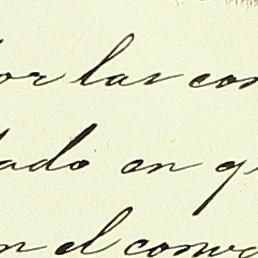 or las con
tado en q
n el conve